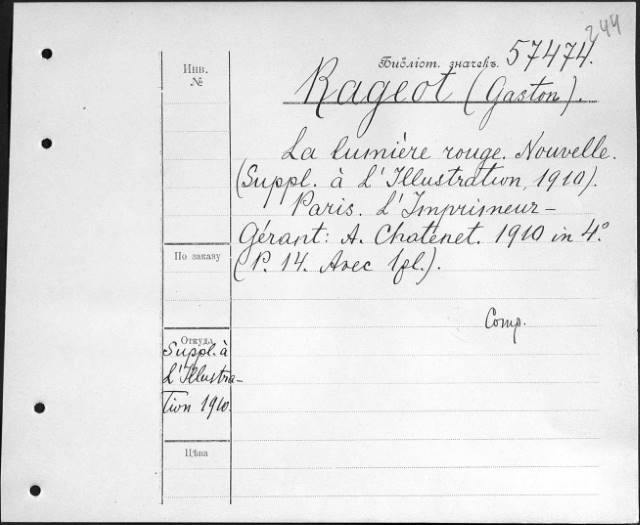 244
Библіот. значекъ. 57474.
Инв.
№
Rageot (Gaston).
La lumière rouge. Nouvelle.
(Suppl. à L'Illustration, 1910).
Paris. L'Imprimeur-
Gérant: A. Chatenet. 1910 in 4°.
(P. 14. Avec 1pl.).
По заказу
Comp.
Откуда
Suppl. à
L'Illustra-
tion 1910.
Цѣна